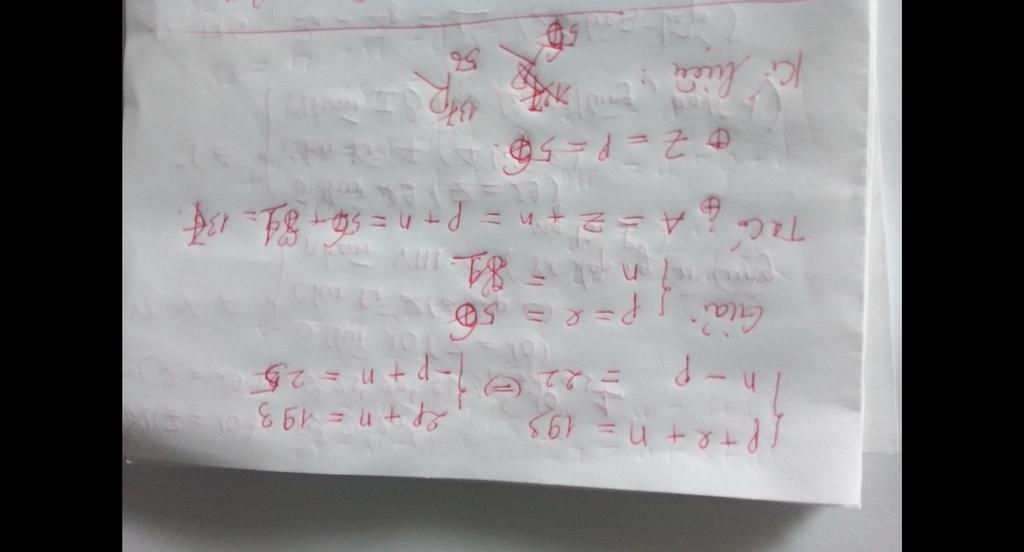 { p + e + n = 193 { 2p + n = 193
n - p = 22 ⇔ -p + n = 25
Giải { p = e = 56
n = 81
Ta có: ⊕ A = Z + n = p + n = 56 + 81 = 137
⊕ Z = p = 56
Kí hiệu: 137 P 56